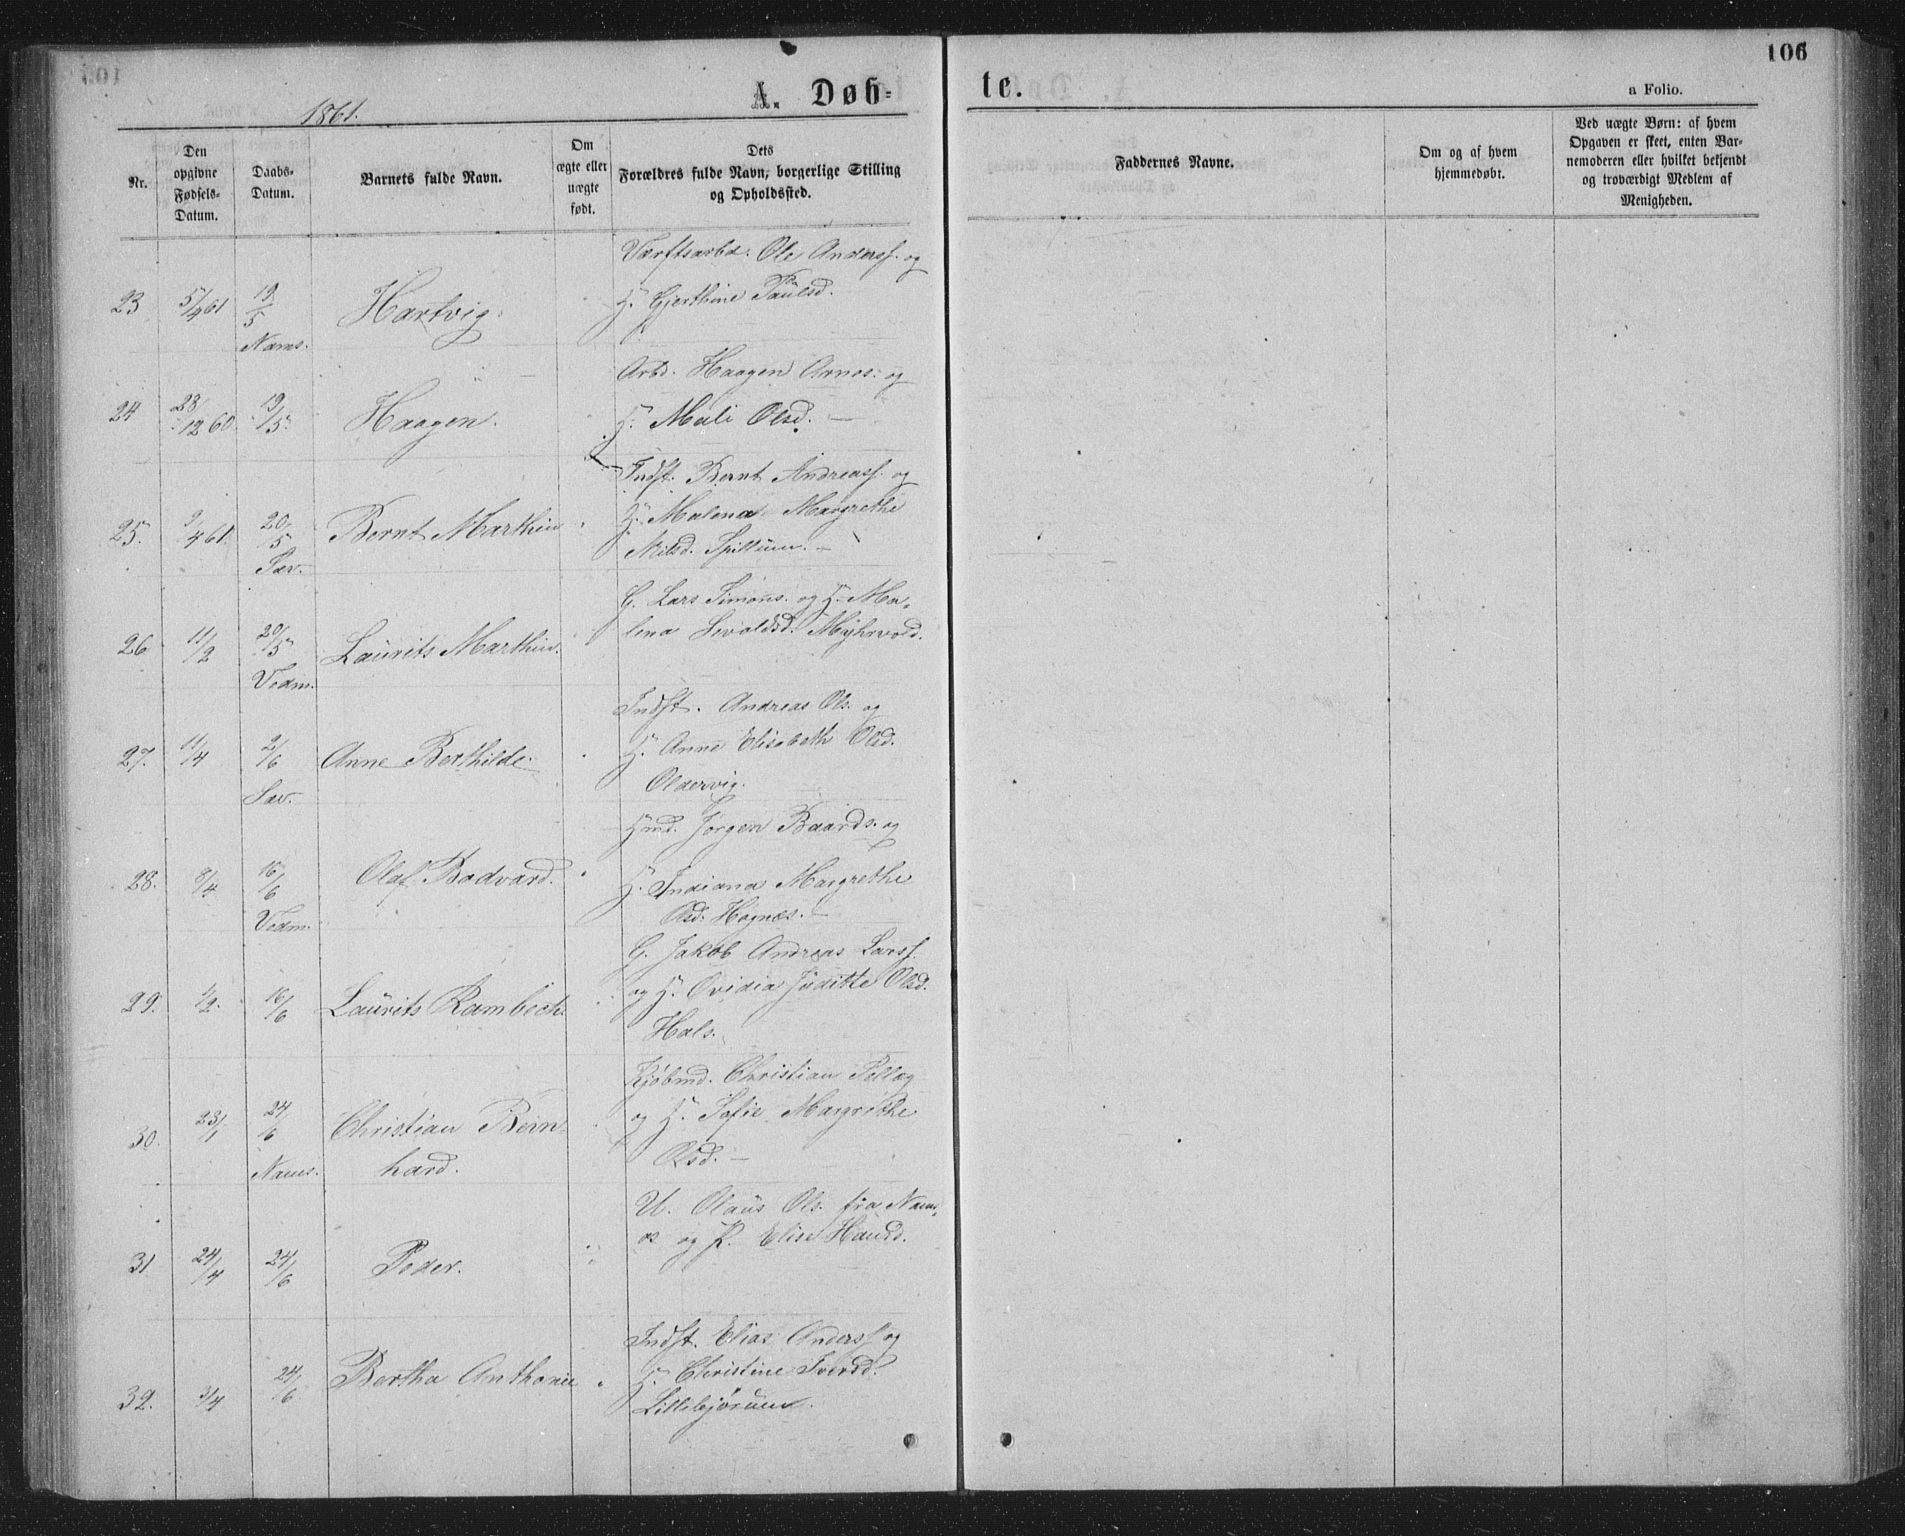 106
A. Døb-
te.
a Folio.
1861.
Nr.
Den opgivne Fødsels-Datum.
Daabs-Datum.
Barnets fulde Navn.
Om ægte eller uægte født.
Dets Forældres fulde Navn, borgerlige Stilling og Opholdssted.
Faddernes Navne.
Om og af hvem hjemmedøbt.
Ved uægte Børn: af hvem Opgaven er skeet, enten Barnemoderen eller hvilket bekjendt og troværdigt Medlem af Menigheden.
Værftsarbd. Ole Anderss. og
23 5/4 61 19/5 Hartvig. H. Gjerthine Paulsd.
Nams.
Arbd. Haagen Arnes. og
24 28/12 60 19/5 Haagen. H. Mali Olsd. —
Indst. Bernt Andreass. og
25. 9/4 61. 20/5 Bernt Marthin H. Malena Margrethe
Sæv. Nilsd. Spillum. —
G. Lars Simons. og H. Ma-
26 11/2 20/5 Laurits Marthin. lena Sivaldsd. Myhrvold.
Vedm.
Indst. Andreas Ols. og
27. 11/4 2/6 Anne Berthilde. H. Anne Elisabeth Olsd.
Sæv. Oldervig.
Hmd. Jørgen Baards. og
28. 8/4 16/6 Olaf Bodvard. H. Indiana Margrethe
Vedm. Olsd. Hognæs. —
G. Jakob Andreas Larss.
29. 1/2. 16/6 Laurits Rambech. og H. Ovidia Juditte Olsd.
Hals.
Kjøbmd. Christian Sellæg
30. 23/1 24/6 Christian Bern- og H. Sofie Margrethe
Nams. hard. Olsd. —
U. Olaus Ols. fra Nams-
os og P. Elise Hansd.
31 24/4 24/6 Peder.
Indst. Elias Anderss. og
32. 3/4 24/6 Bertha Anthonie H. Christine Iversd.
Lillebjørum.